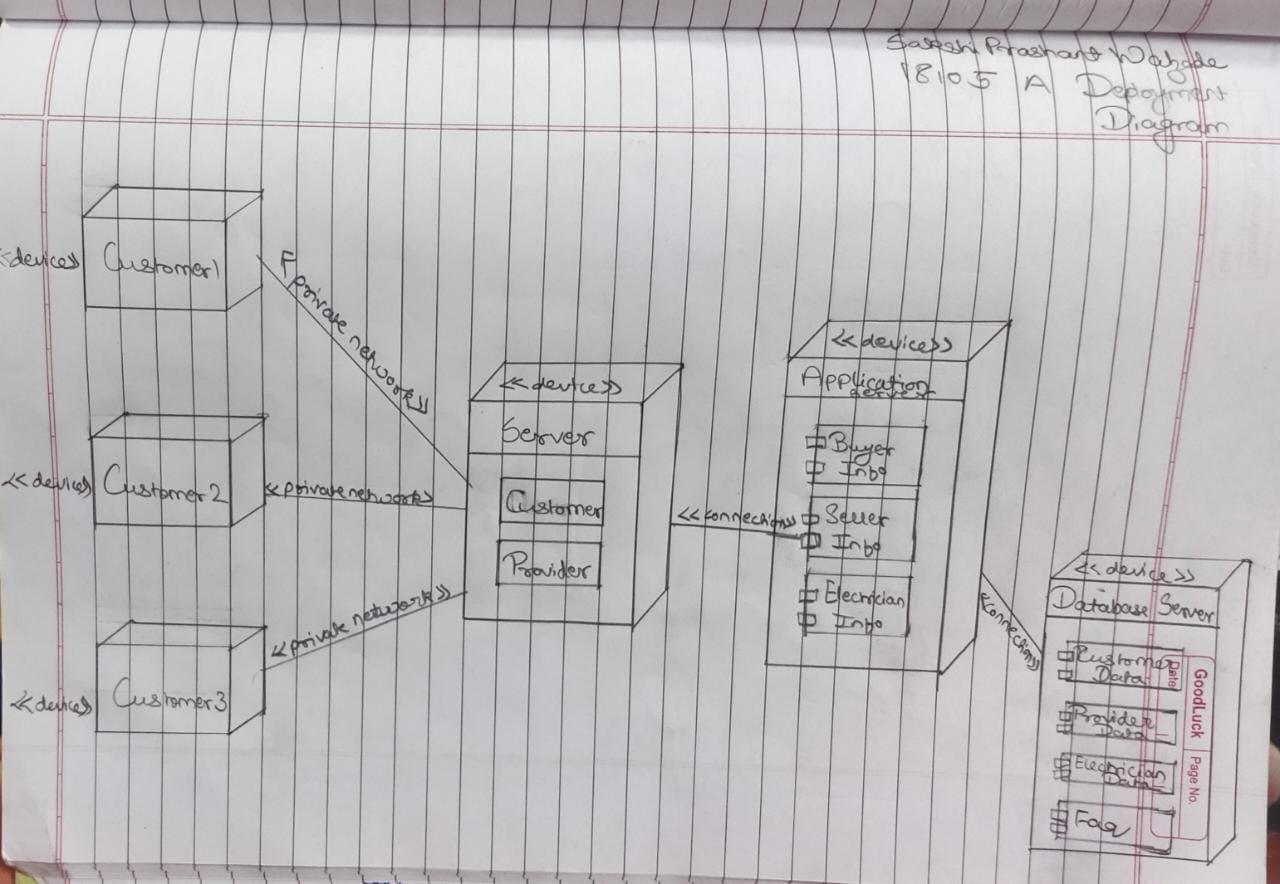 Sakshi Prashant Wabgde
18105 A Deployment
Diagram
<<device>>
Customer1
<<private network>>
<<device>>
Customer2
<<private network>>
<<device>>
Customer3
<<private network>>
<<device>>
Server
Customer
Provider
<<connection>>
<<device>>
Application
server
Buyer
Info
Seller
Info
Elecrician
Info
<<connection>>
<<device>>
Database Server
Customer
Data
Provider
Data
Elecrician
Data
Faq
GoodLuck
Page No.
Date